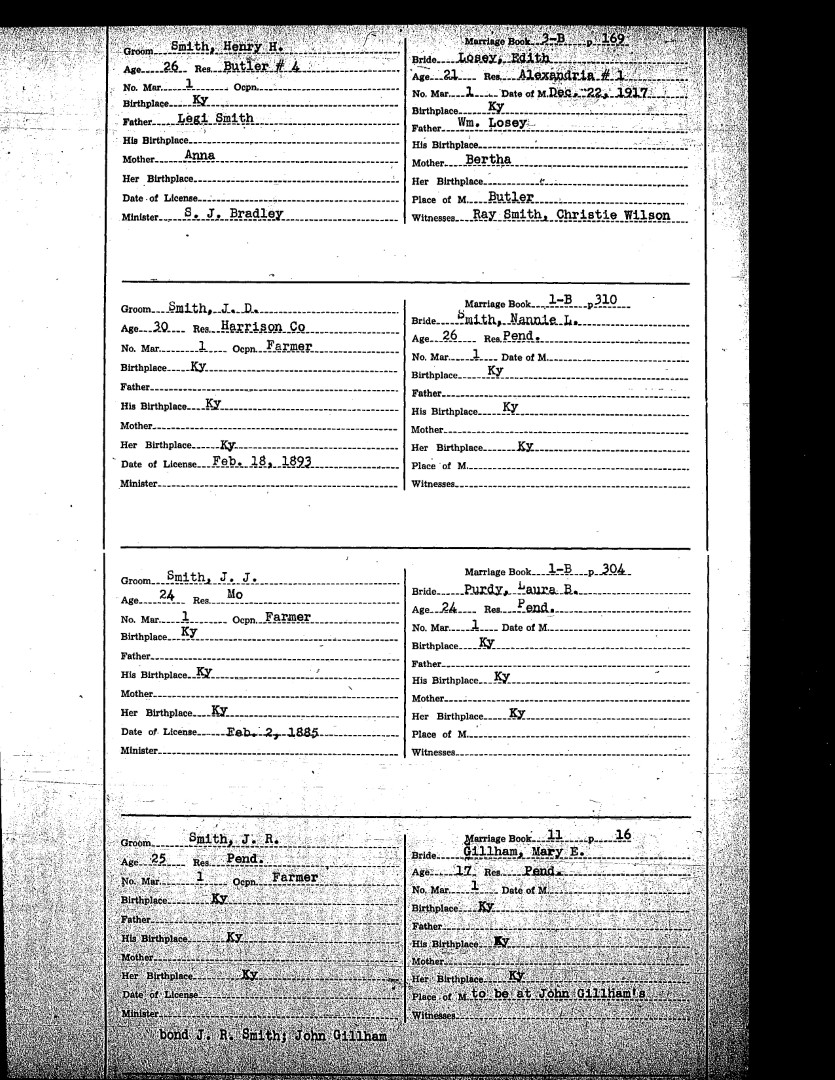 Groom Smith, Henry H.
Age 26 Res. Butler # 4
No. Mar. 1 Ocpn.
Birthplace Ky
Father Legi Smith
His Birthplace
Mother Anna
Her Birthplace
Date of License
Minister S. J. Bradley
Marriage Book 3-B p 169
Bride Losey, Edith
Age 21 Res. Alexandria # 1
No. Mar. 1 Date of M. Dec. 22, 1917
Birthplace Ky
Father Wm. Losey
His Birthplace
Mother Bertha
Her Birthplace
Place of M. Butler
Witnesses Ray Smith, Christie Wilson
Groom Smith, J. D.
Age 30 Res. Harrison Co
No. Mar. 1 Ocpn. Farmer
Birthplace Ky
Father
His Birthplace Ky
Mother
Her Birthplace Ky
Date of License Feb. 18, 1893
Minister
Marriage Book 1-B p 310
Bride Smith, Nannie L.
Age 26 Res. Pend.
No. Mar. 1 Date of M.
Birthplace Ky
Father
His Birthplace Ky
Mother
Her Birthplace Ky
Place of M.
Witnesses
Groom Smith, J. J.
Age 24 Res. Mo
No. Mar. 1 Ocpn. Farmer
Birthplace Ky
Father
His Birthplace Ky
Mother
Her Birthplace Ky
Date of License Feb. 2, 1885
Minister
Marriage Book 1-B p 304
Bride Purdy, Laura B.
Age 24 Res. Pend.
No. Mar. 1 Date of M.
Birthplace Ky
Father
His Birthplace Ky
Mother
Her Birthplace Ky
Place of M.
Witnesses
Groom Smith, J. R.
Age 25 Res. Pend.
No. Mar. 1 Ocpn. Farmer
Birthplace Ky
Father
His Birthplace Ky
Mother
Her Birthplace Ky
Date of License
Minister
bond J. R. Smith; John Gillham
Marriage Book 11 p 16
Bride Gillham, Mary E.
Age 17 Res. Pend.
No. Mar. 1 Date of M.
Birthplace Ky
Father
His Birthplace Ky
Mother
Her Birthplace Ky
Place of M. to be at John Gillham's
Witnesses